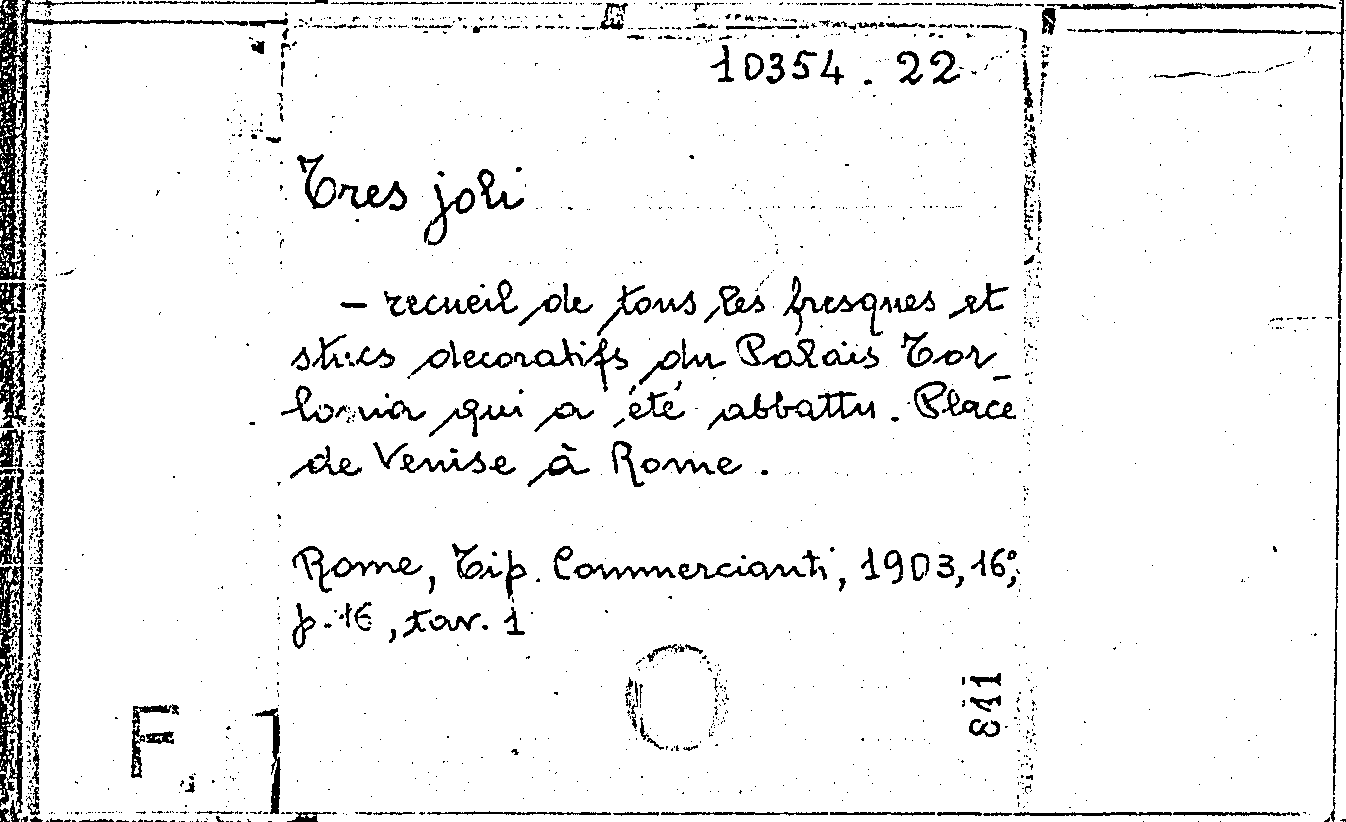 10354.22
Tres joli
- recueil de tous les fresques et
stucs decoratifs du Palais Tor-
lonia qui a été abbattu. Place
de Venise à Rome.
Rome, Tip. Commercianti, 1903, 16°,
p. 16, tav. 1
811
F